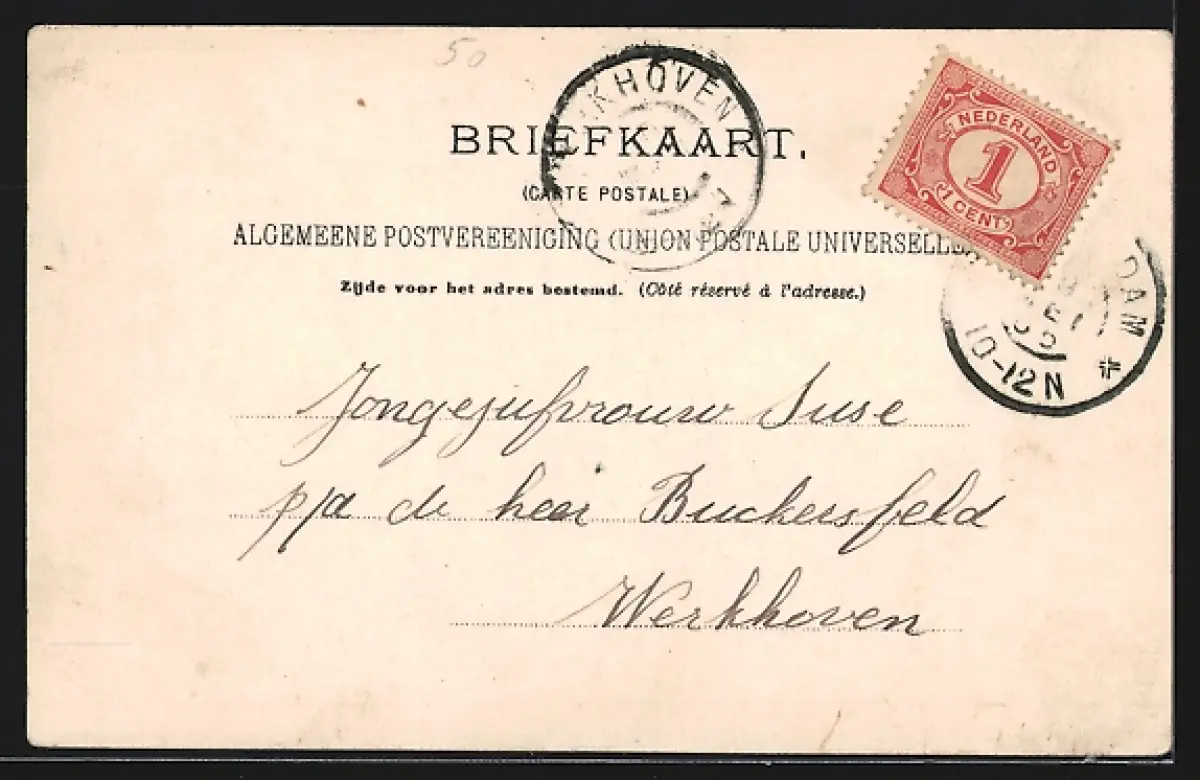 50
KHOVEN
BRIEFKAART.
(CARTE POSTALE)
ALGEMEENE POSTVEREENIGING (UNION POSTALE UNIVERSELLE
Zijde voor het adres bestemd. (Côté réservé à l'adresse.)
NEDERLAND
1
(1 CENT)
DAM
10-12N
Jongejufvrouw Suse
p/a de heer Buckersfeld
Werkhoven